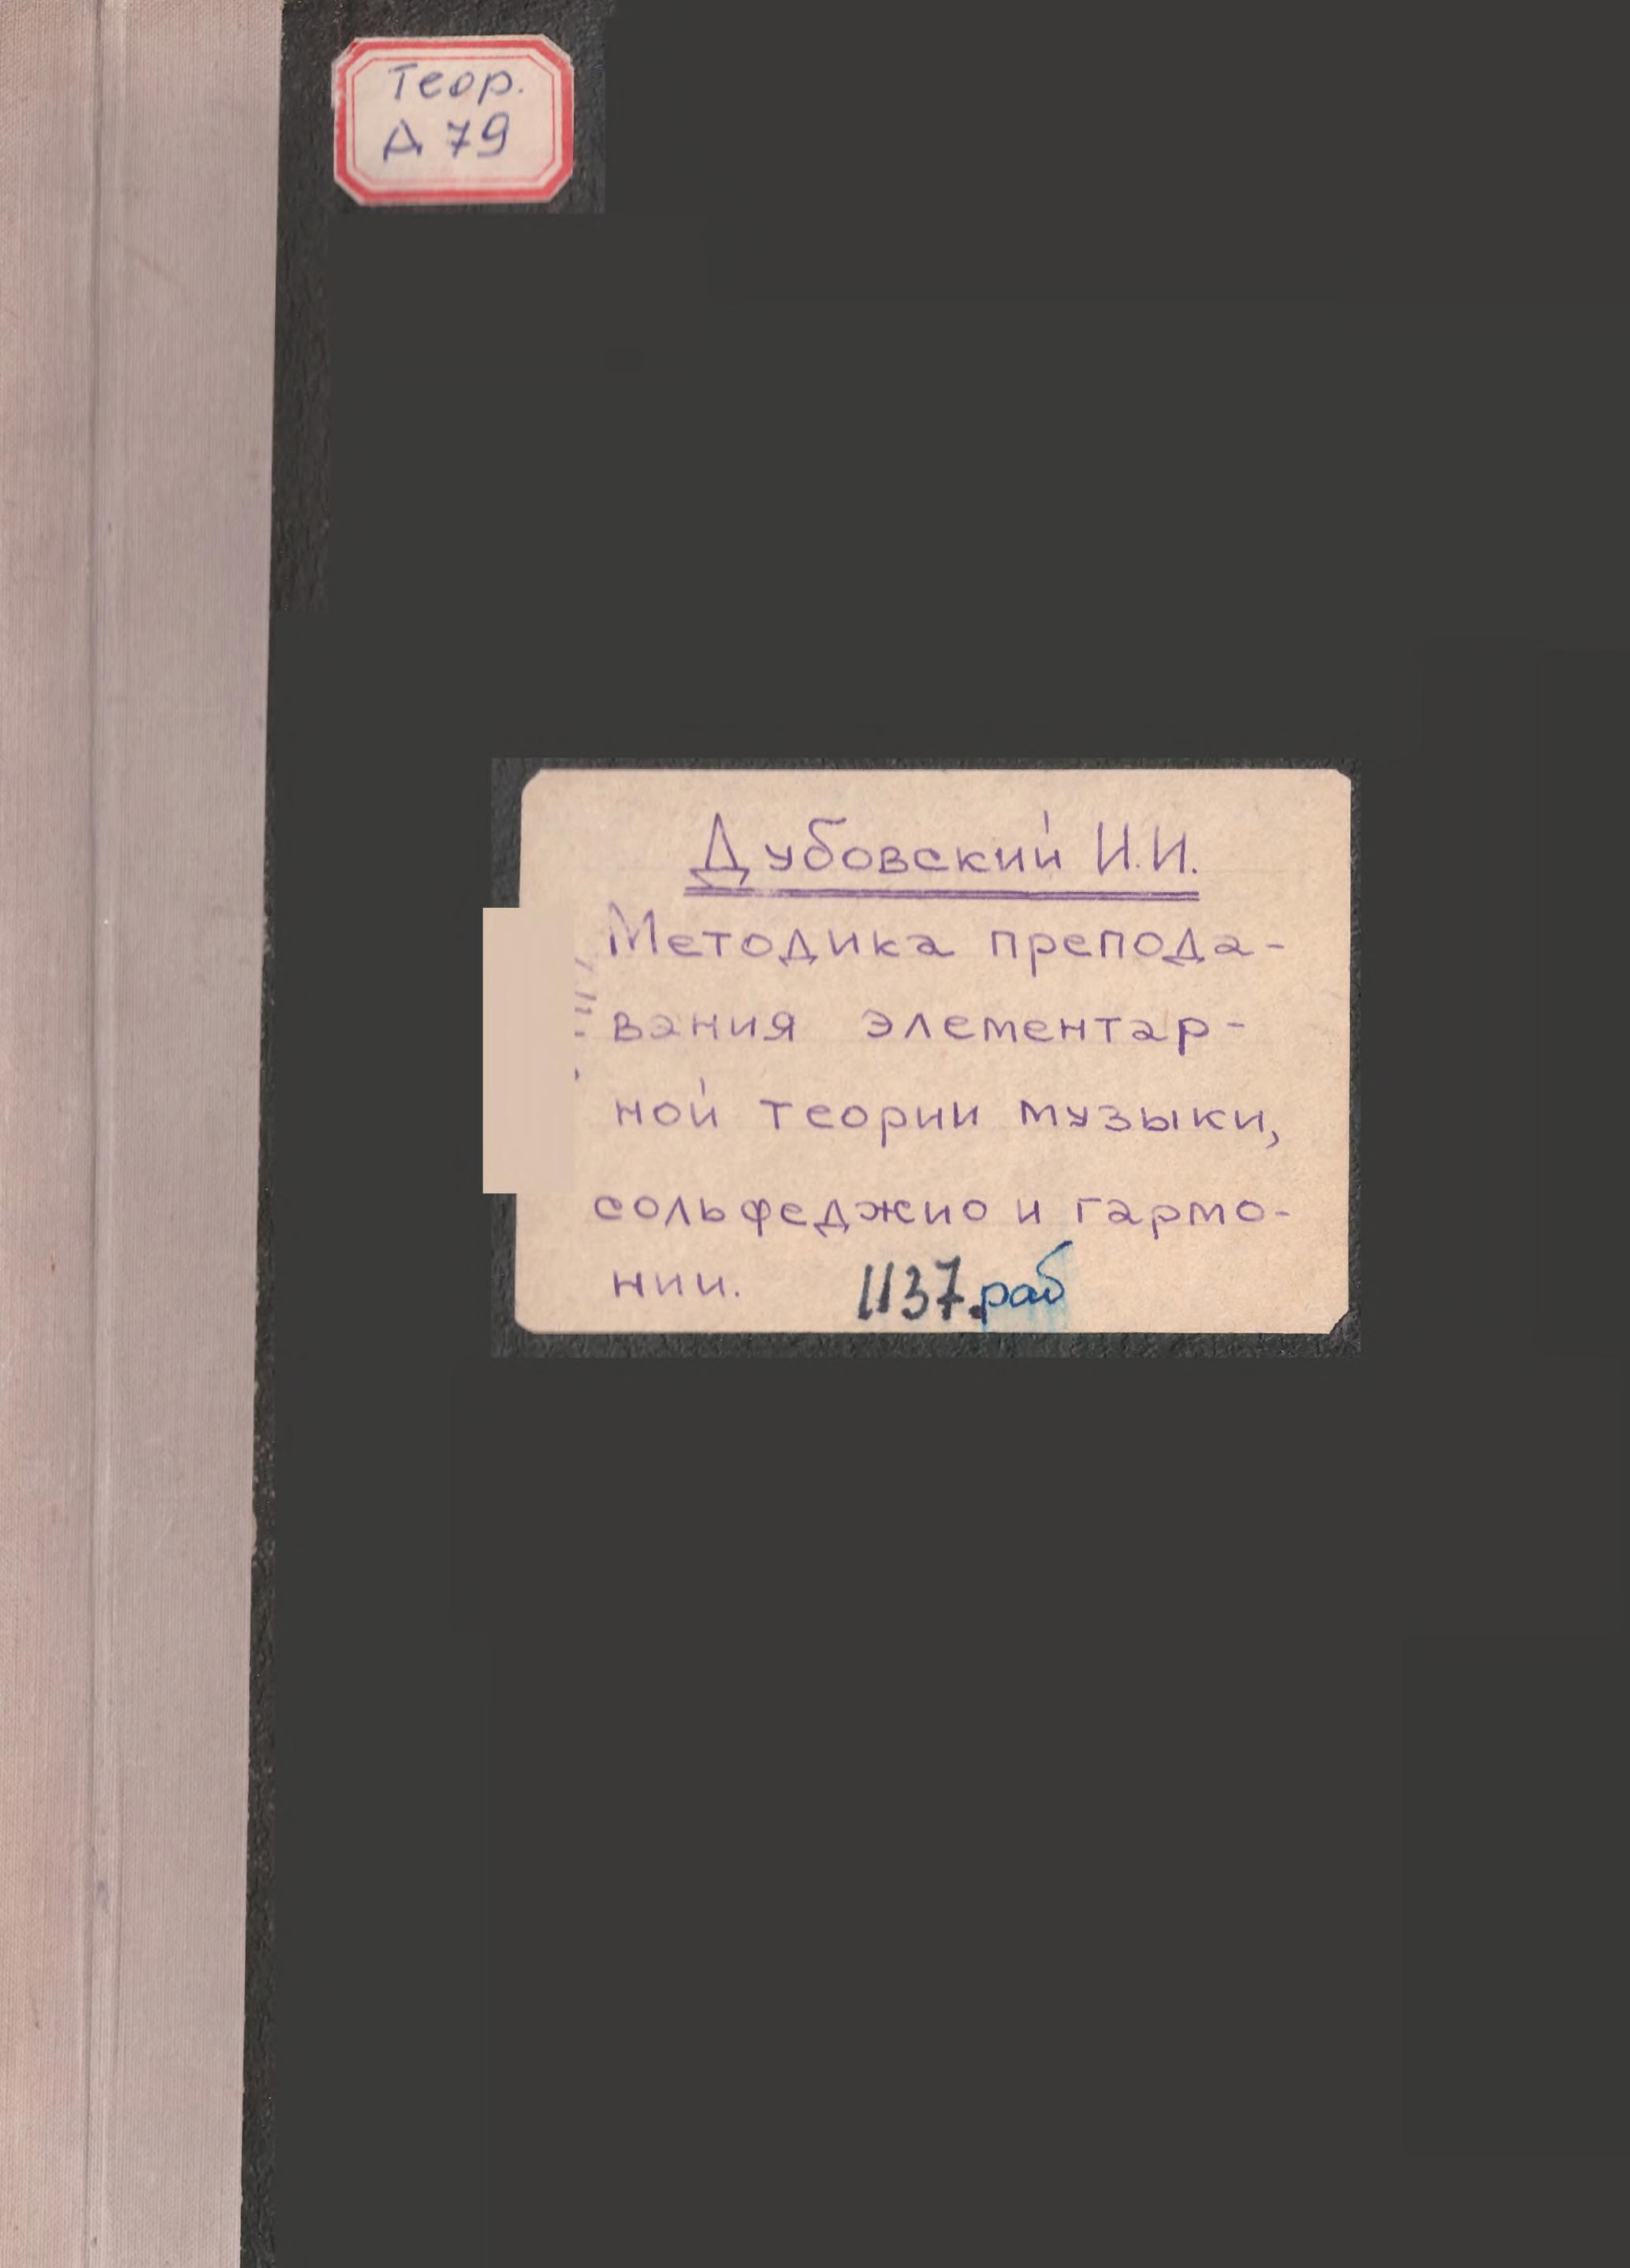 Теор.
Д 79
Дубовский И.И.
Методика препода-
вания элементар-
ной теории музыки,
сольфеджио и гармо-
нии.
1137.раб